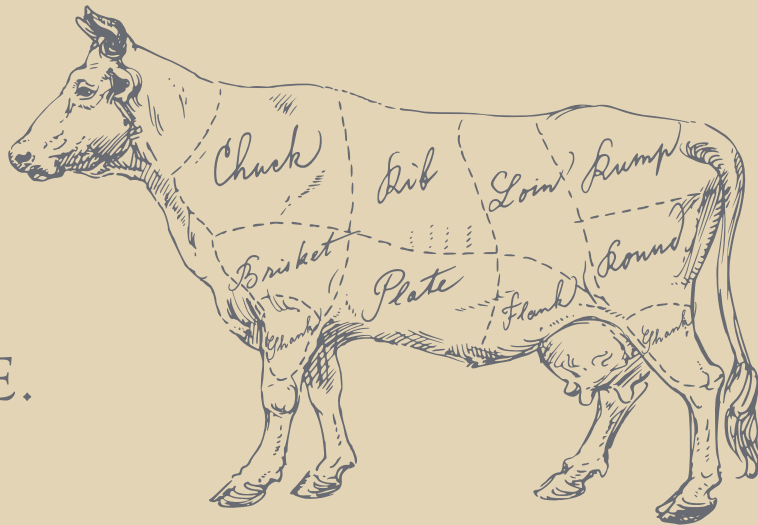 Chuck
Rib
Loin
Rump
Brisket
Plate
Flank
Round
Shank
Shank
E.